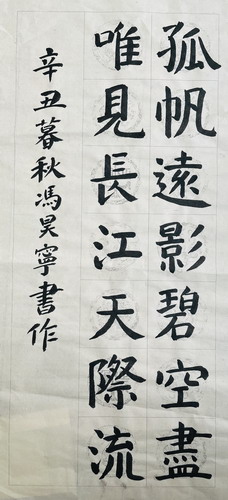 孤帆遠影碧空盡
唯見長江天際流
辛丑暮秋馮昊寧書作